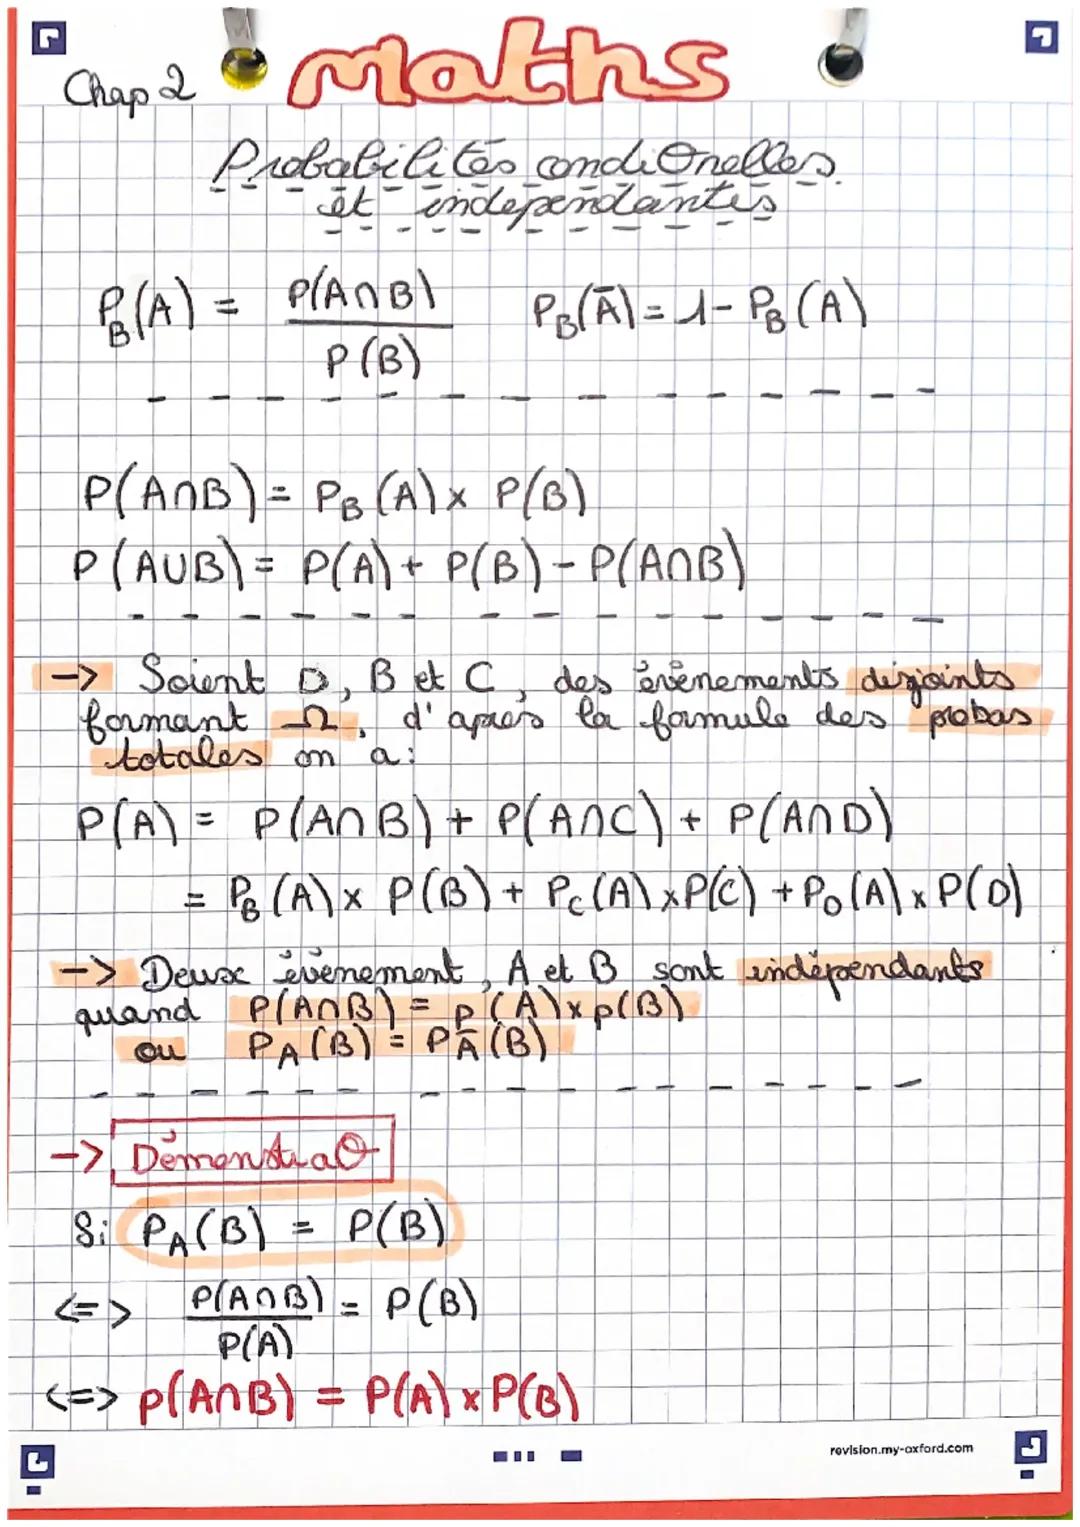 Chap 2
Maths
Probabilités condiθnelles
et indépendantes
P_B(A) = P(A∩B) / P(B)    P_B(Ā) = 1 - P_B(A)
P(A∩B) = P_B(A) x P(B)
P(A∪B) = P(A) + P(B) - P(A∩B)
-> Soient D, B et C, des évènements disjoints
formant Ω, d'après la formule des probas
totales on a:
P(A) = P(A∩B) + P(A∩C) + P(A∩D)
= P_B(A) x P(B) + P_C(A) x P(C) + P_D(A) x P(D)
-> Deux évènement, A et B sont indépendants
quand P(A∩B) = p(A) x p(B)
ou P_A(B) = P_Ā(B)
-> Démonstraθ
Si P_A(B) = P(B)
<=> P(A∩B) / P(A) = P(B)
<=> p(A∩B) = P(A) x P(B)
revision.my-oxford.com